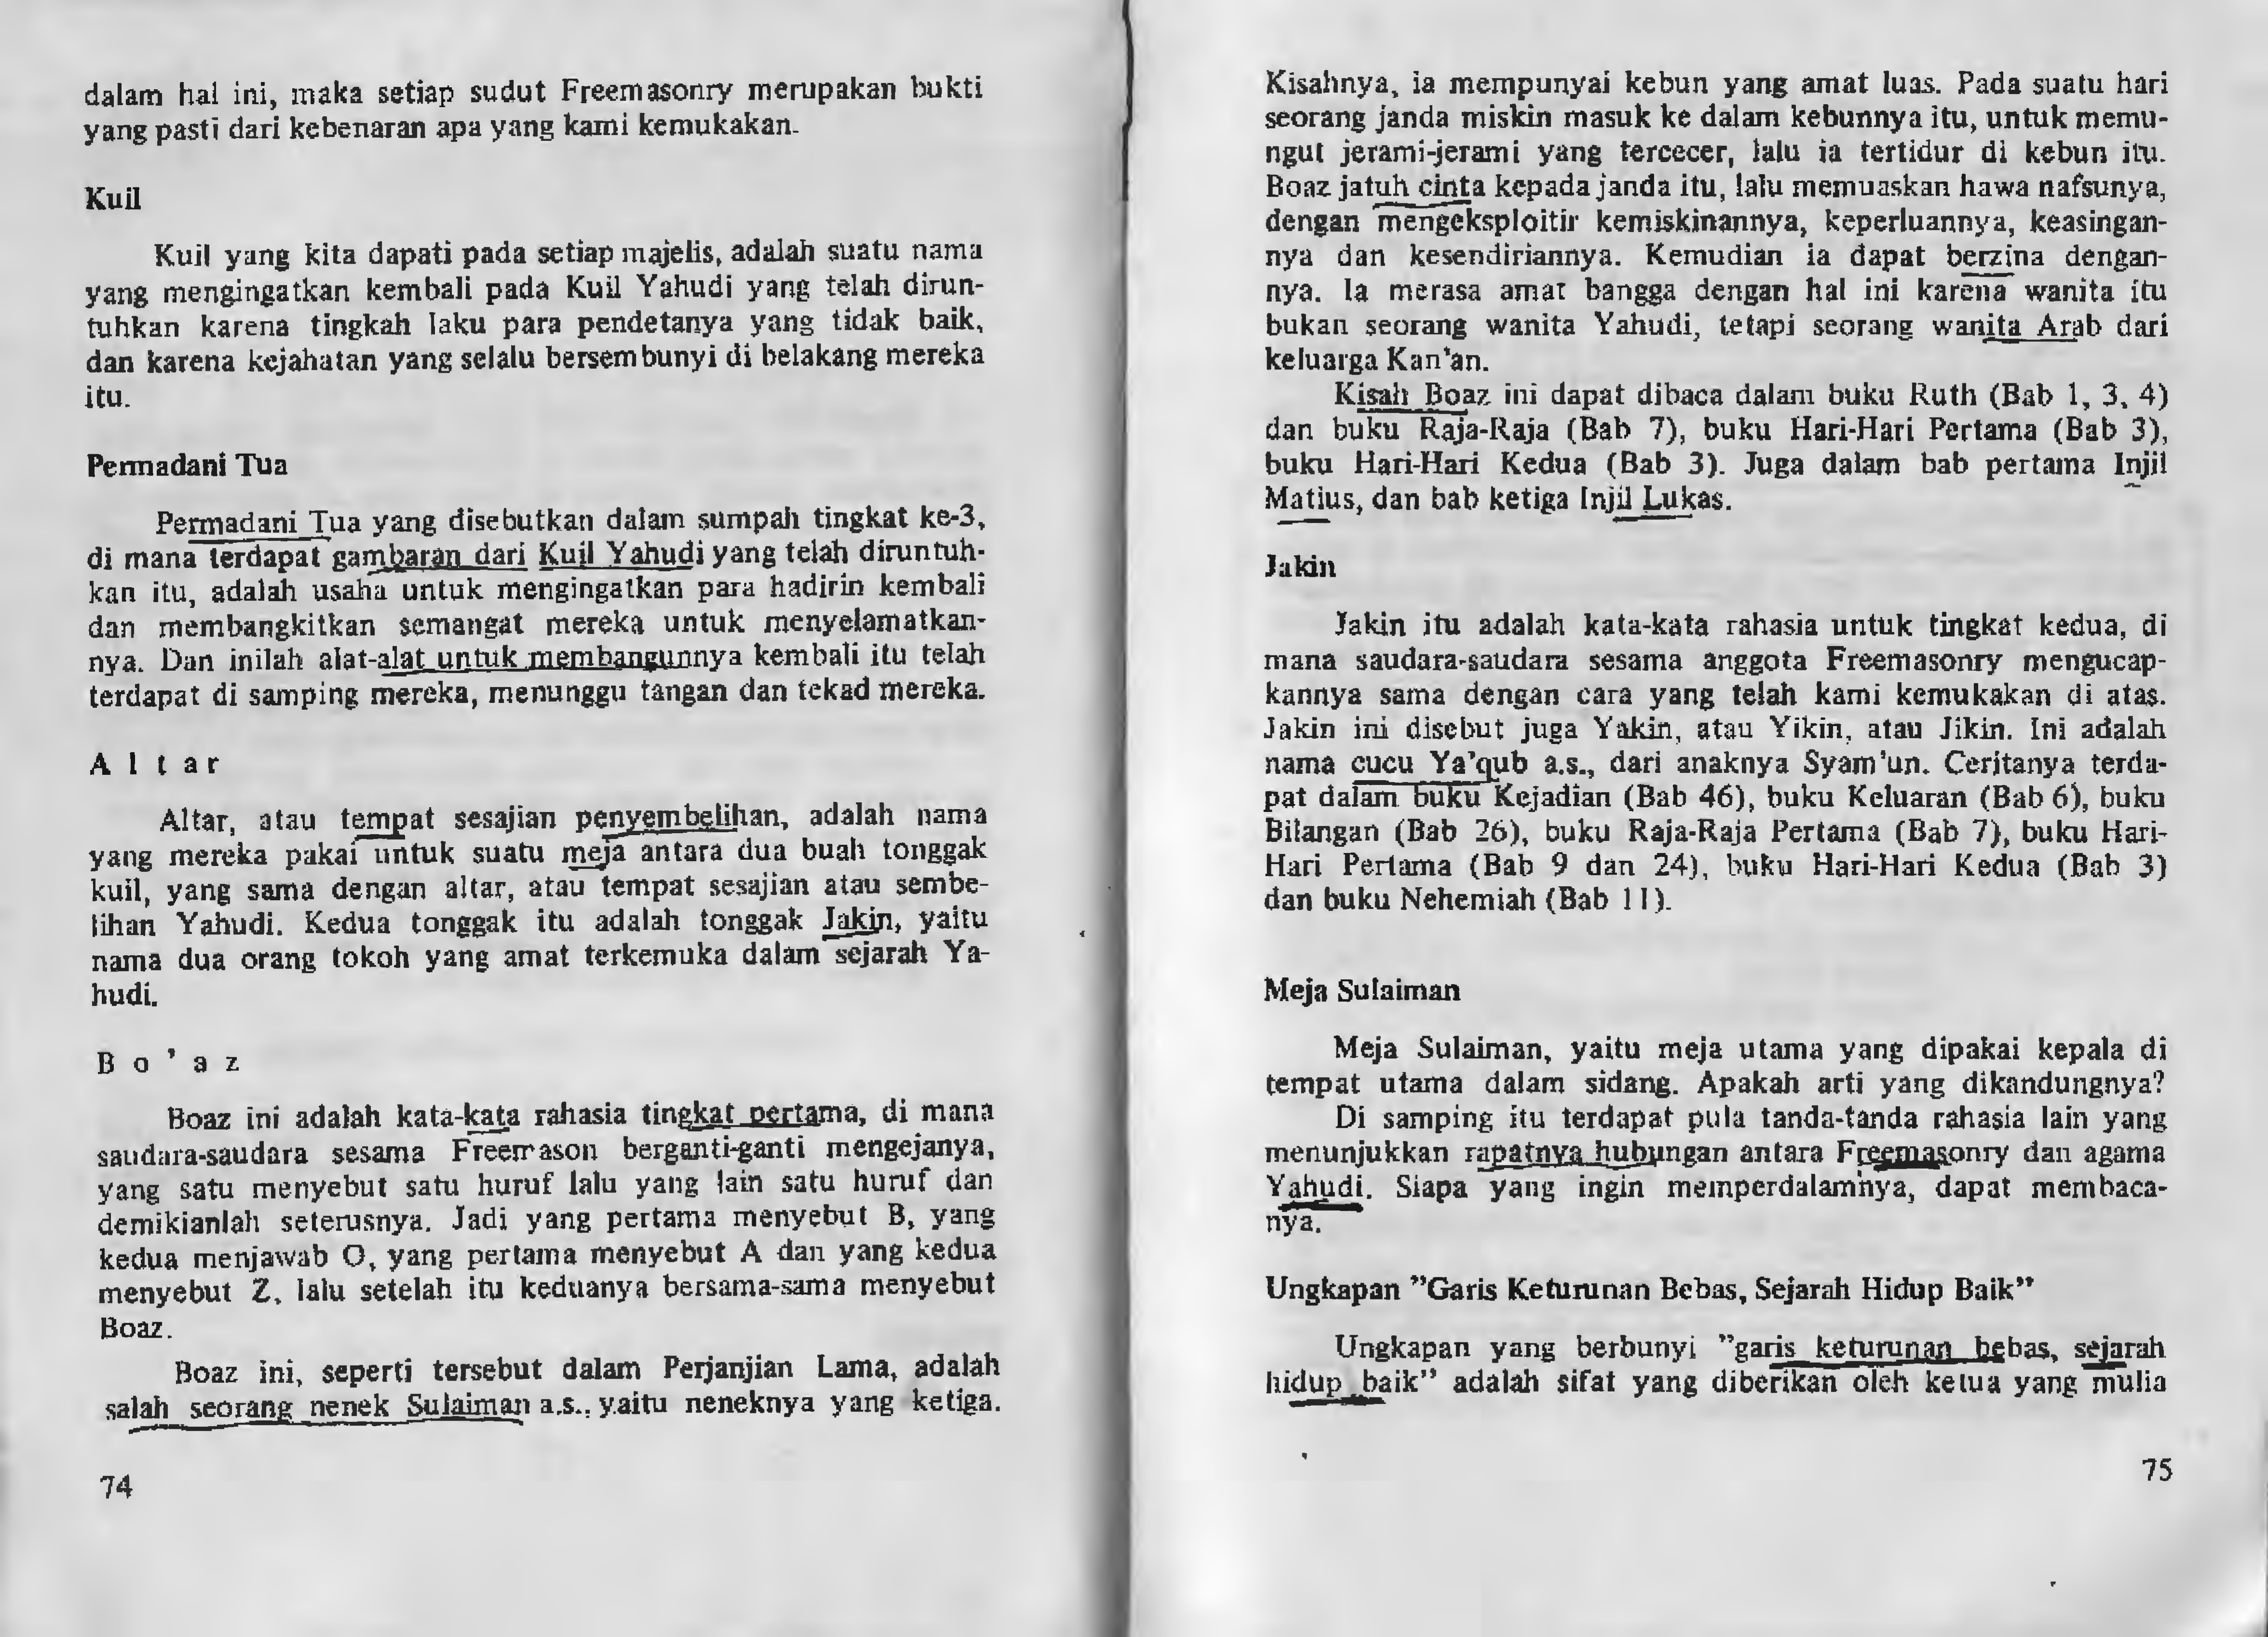 dalam hal ini, maka setiap sudut Freemasonry merupakan bukti
yang pasti dari kebenaran apa yang kami kemukakan.
Kuil
Kuil yang kita dapati pada setiap majelis, adalah suatu nama
yang mengingatkan kembali pada Kuil Yahudi yang telah dirun-
tuhkan karena tingkah laku para pendetanya yang tidak baik,
dan karena kejahatan yang selalu bersembunyi di belakang mereka
itu.
Permadani Tua
Permadani Tua yang disebutkan dalam sumpah tingkat ke-3,
di mana terdapat gambaran dari Kuil Yahudi yang telah diruntuh-
kan itu, adalah usaha untuk mengingatkan para hadirin kembali
dan membangkitkan semangat mereka untuk menyelamatkan-
nya. Dan inilah alat-alat untuk membangunnya kembali itu telah
terdapat di samping mereka, menunggu tangan dan tekad mereka.
A l t a r
Altar, atau tempat sesajian penyembelihan, adalah nama
yang mereka pakai untuk suatu meja antara dua buah tonggak
kuil, yang sama dengan altar, atau tempat sesajian atau sembe-
lihan Yahudi. Kedua tonggak itu adalah tonggak Jakin, yaitu
nama dua orang tokoh yang amat terkemuka dalam sejarah Ya-
hudi.
B o ' a z
Boaz ini adalah kata-kata rahasia tingkat pertama, di mana
saudara-saudara sesama Freemason berganti-ganti mengejanya,
yang satu menyebut satu huruf lalu yang lain satu huruf dan
demikianlah seterusnya. Jadi yang pertama menyebut B, yang
kedua menjawab O, yang pertama menyebut A dan yang kedua
menyebut Z, lalu setelah itu keduanya bersama-sama menyebut
Boaz.
Boaz ini, seperti tersebut dalam Perjanjian Lama, adalah
salah seorang nenek Sulaiman a.s., yaitu neneknya yang ketiga.
74
Kisahnya, ia mempunyai kebun yang amat luas. Pada suatu hari
seorang janda miskin masuk ke dalam kebunnya itu, untuk memu-
ngut jerami-jerami yang tercecer, lalu ia tertidur di kebun itu.
Boaz jatuh cinta kepada janda itu, lalu memuaskan hawa nafsunya,
dengan mengeksploitir kemiskinannya, keperluannya, keasingan-
nya dan kesendiriannya. Kemudian ia dapat berzina dengan-
nya. Ia merasa amat bangga dengan hal ini karena wanita itu
bukan seorang wanita Yahudi, tetapi seorang wanita Arab dari
keluarga Kan'an.
Kisah Boaz ini dapat dibaca dalam buku Ruth (Bab 1, 3, 4)
dan buku Raja-Raja (Bab 7), buku Hari-Hari Pertama (Bab 3),
buku Hari-Hari Kedua (Bab 3). Juga dalam bab pertama Injil
Matius, dan bab ketiga Injil Lukas.
Jakin
Jakin itu adalah kata-kata rahasia untuk tingkat kedua, di
mana saudara-saudara sesama anggota Freemasonry mengucap-
kannya sama dengan cara yang telah kami kemukakan di atas.
Jakin ini disebut juga Yakin, atau Yikin, atau Jikin. Ini adalah
nama cucu Ya'qub a.s., dari anaknya Syam'un. Ceritanya terda-
pat dalam buku Kejadian (Bab 46), buku Keluaran (Bab 6), buku
Bilangan (Bab 26), buku Raja-Raja Pertama (Bab 7), buku Hari-
Hari Pertama (Bab 9 dan 24), buku Hari-Hari Kedua (Bab 3)
dan buku Nehemiah (Bab 11).
Meja Sulaiman
Meja Sulaiman, yaitu meja utama yang dipakai kepala di
tempat utama dalam sidang. Apakah arti yang dikandungnya?
Di samping itu terdapat pula tanda-tanda rahasia lain yang
menunjukkan rapatnya hubungan antara Freemasonry dan agama
Yahudi. Siapa yang ingin memperdalamnya, dapat membaca-
nya.
Ungkapan "Garis Keturunan Bebas, Sejarah Hidup Baik"
Ungkapan yang berbunyi "garis keturunan bebas, sejarah
hidup baik" adalah sifat yang diberikan oleh ketua yang mulia
75